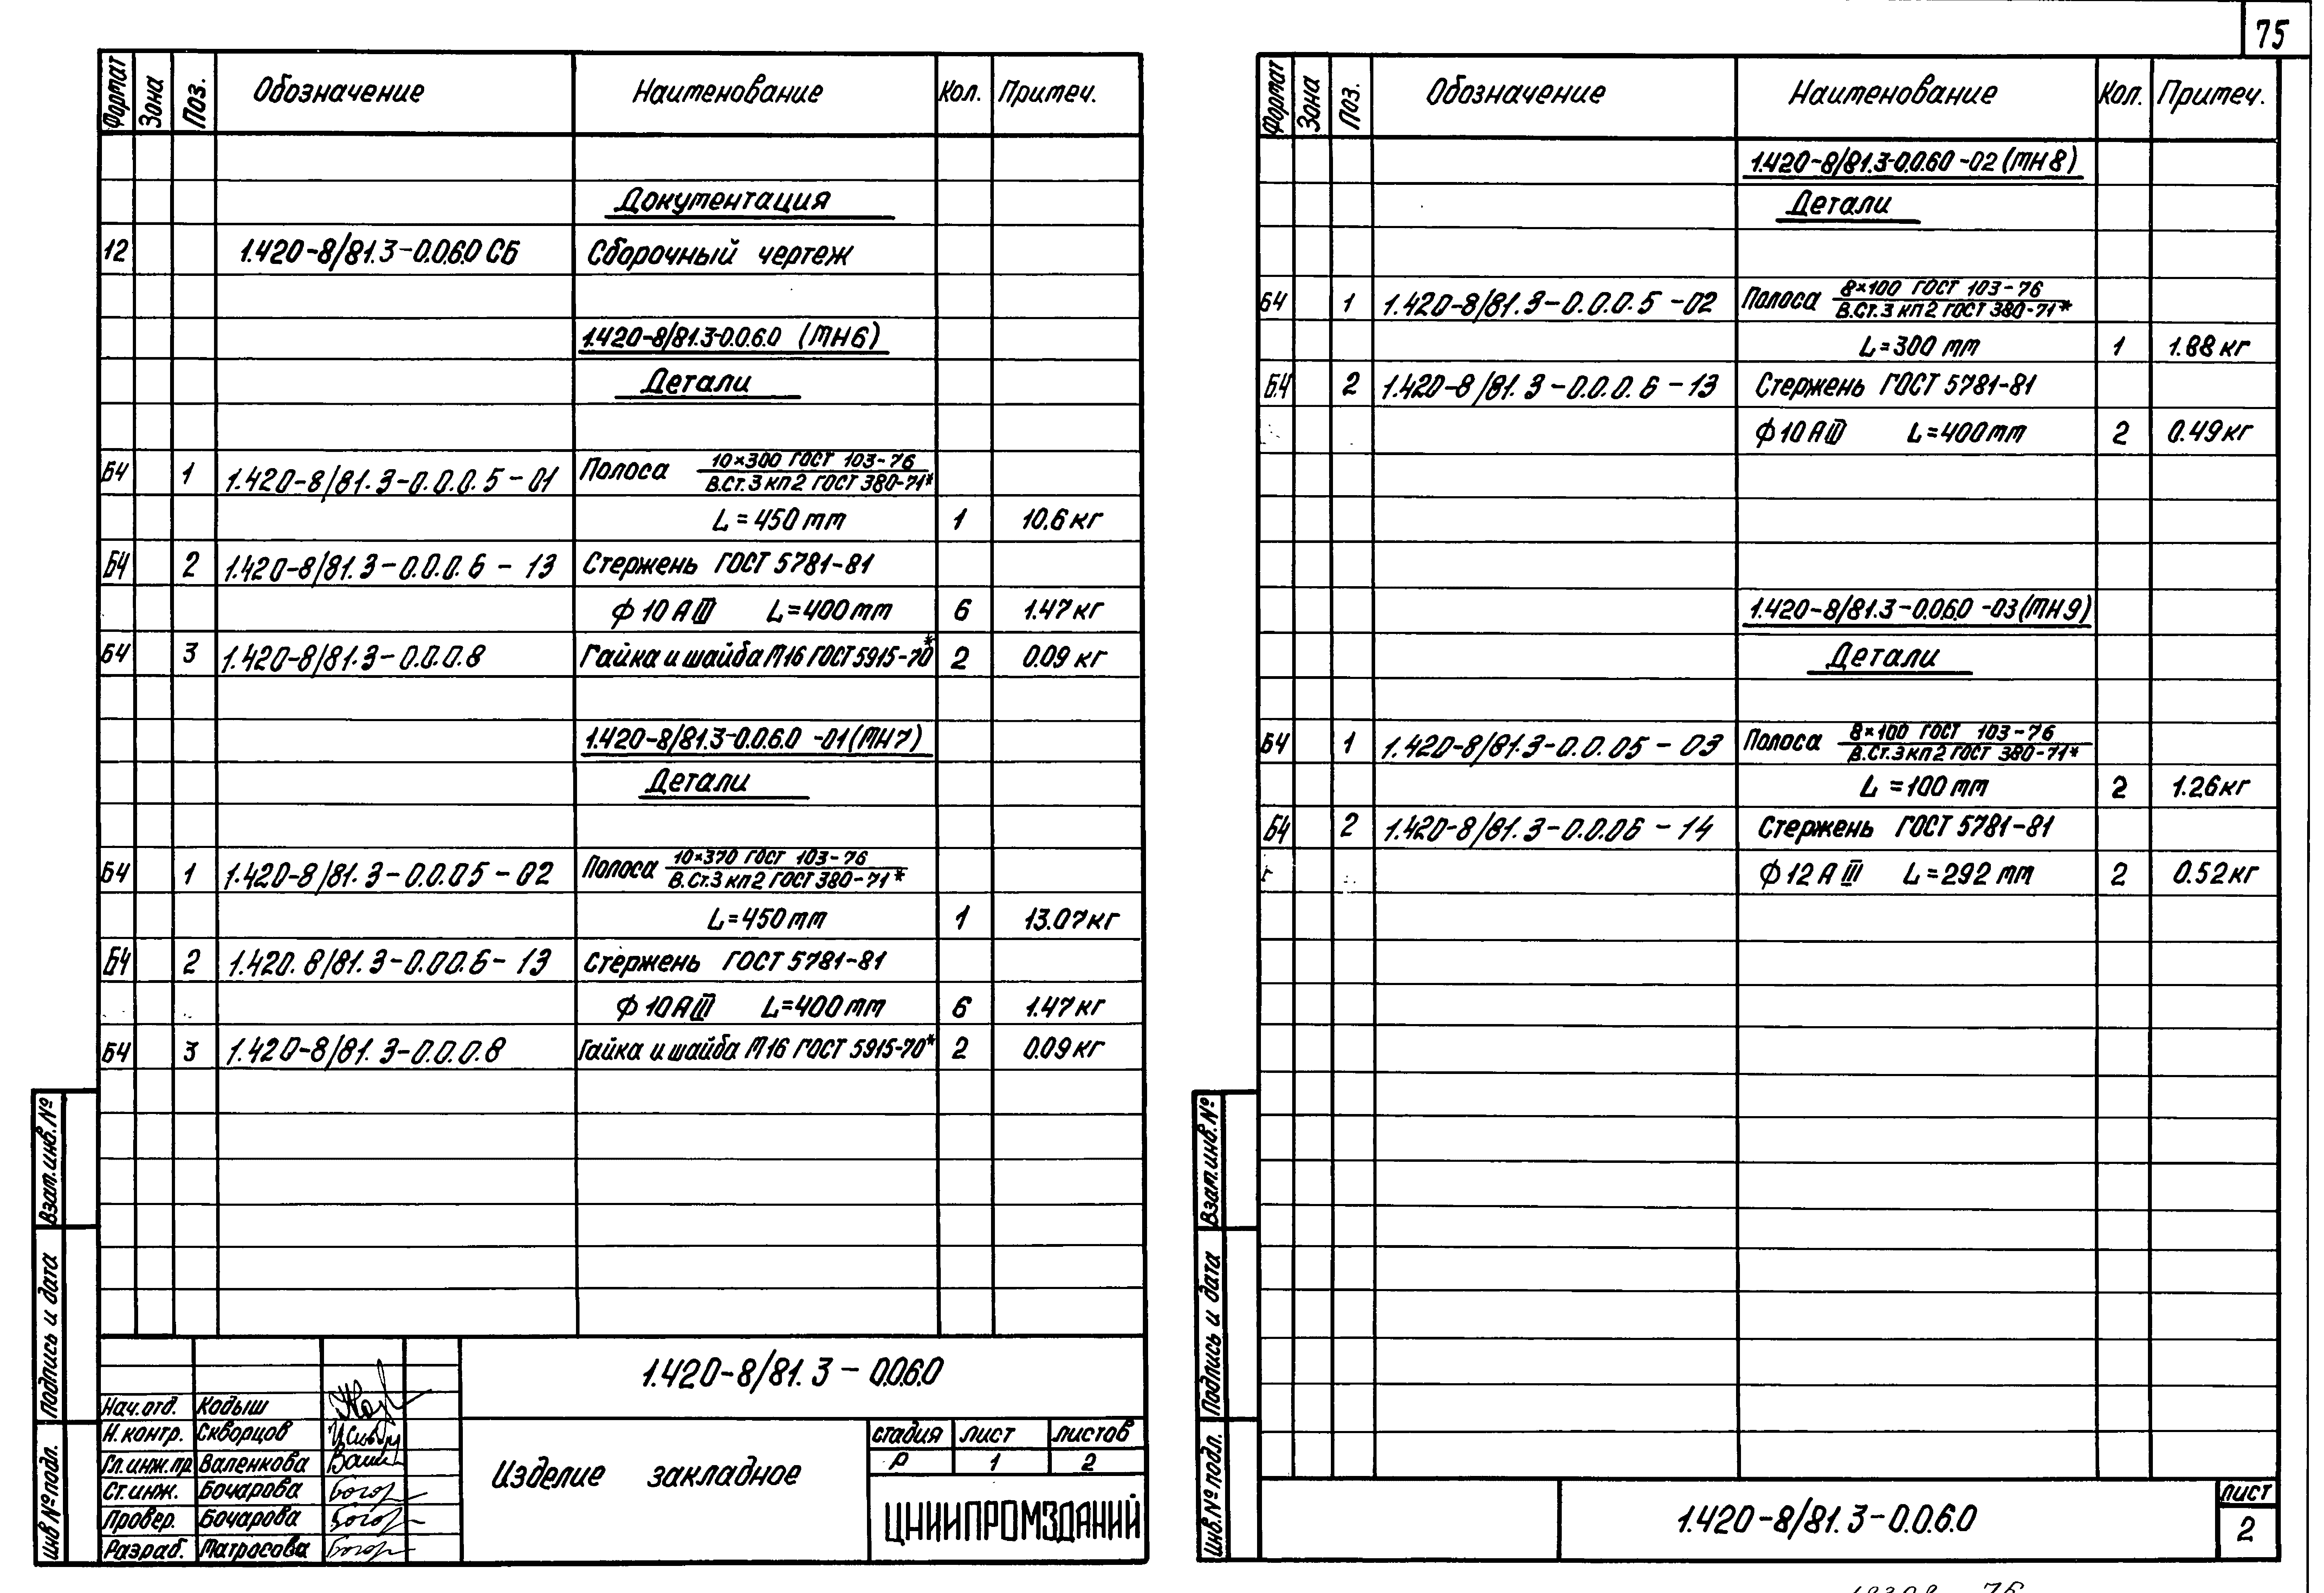 75
Формат Зона Поз. Обозначение Наименование Кол. Примеч.
Документация
12 1.420-8/81.3-0.0.6.0 СБ Сборочный чертеж
1.420-8/81.3-0.0.6.0 (МН6)
Детали
БЧ 1 1.420-8/81.3-0.0.0.5-01 Полоса 10×300 ГОСТ 103-76
В.Ст.3 кп2 ГОСТ 380-71*
L=450мм 1 10.6кг
БЧ 2 1.420-8/81.3-0.0.0.6-13 Стержень ГОСТ 5781-81
ф10АIII L=400мм 6 1.47кг
БЧ 3 1.420-8/81.3-0.0.0.8 Гайка и шайба М16 ГОСТ 5915-70* 2 0.09 кг
1.420-8/81.3-0.0.6.0 -01(МН7)
Детали
БЧ 1 1.420-8/81.3-0.0.05-02 Полоса 10×370 ГОСТ 103-76
В.Ст.3 кп2 ГОСТ 380-71*
L=450мм 1 13.07кг
БЧ 2 1.420.8/81.3-0.0.0.6-13 Стержень ГОСТ 5781-81
ф10АIII L=400мм 6 1.47кг
БЧ 3 1.420-8/81.3-0.0.0.8 Гайка и шайба М16 ГОСТ 5915-70* 2 0.09кг
Взам.инв.№
Подпись и дата
Инв №подл.
1.420-8/81.3-0.0.6.0
Нач.отд. Кодыш
Н.контр. Скворцов
Гл.инж.пр. Валенкова
Ст.инж. Бочарова
Провер. Бочарова
Разраб. Матросова
Изделие закладное
стадия лист листов
Р 1 2
ЦНИИПРОМЗДАНИЙ
Формат Зона Поз. Обозначение Наименование Кол. Примеч.
1.420-8/81.3-0.0.6.0 -02(МН8)
Детали
БЧ 1 1.420-8/81.3-0.0.0.5-02 Полоса 8×100 ГОСТ 103-76
В.Ст.3 кп2 ГОСТ 380-71*
L=300мм 1 1.88кг
БЧ 2 1.420-8/81.3-0.0.0.6-13 Стержень ГОСТ 5781-81
ф10АIII L=400мм 2 0.49кг
1.420-8/81.3-0.0.6.0 -03(МН9)
Детали
БЧ 1 1.420-8/81.3-0.0.05-03 Полоса 8×100 ГОСТ 103-76
В.Ст.3кп2 ГОСТ 380-71*
L=100мм 2 1.26кг
БЧ 2 1.420-8/81.3-0.0.06-14 Стержень ГОСТ 5781-81
ф12АIII L=292мм 2 0.52кг
Взам.инв.№
Подпись и дата
Инв.№подл.
1.420-8/81.3-0.0.6.0
лист
2